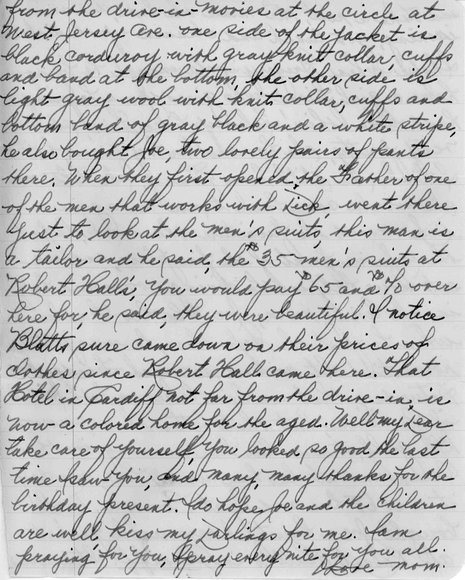 from the drive-in-movies at the circle at
West Jersey Ave. one side of the jacket is
black corduroy with gray knit collar, cuffs
and band at the bottom, the other side is
light gray wool with knit collar, cuffs and
bottom band of gray black and a white stripe,
he also bought Joe, two lovely pairs of pants
there. When they first opened, the Father of one
of the men that works with Dick, went there
just to look at the men's suits, this man is
a tailor and he said, the $35 men's suits at
Robert Halls, you would pay $65 and $70 over
here for, he said, they were beautiful. I notice
Blatts sure came down on their prices of
clothes since Robert Hall came here. That
Hotel in Cardiff not far from the drive-in, is
now a colored home for the aged. Well my dear
take care of yourself, you looked so good the last
time I saw you, and many, many thanks for the
birthday present. I do hope Joe and the children
are well, kiss my Darlings for me. I am
praying for you, I pray every nite for you all.
Love mom.